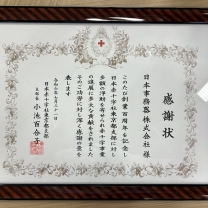 感謝状
日本事務器株式会社 様
このたび創業百周年を記念し
日本赤十字社東京都支部に対し
多額の浄財を寄せられ赤十字事業
の進展に多大な貢献をされました
そのご功労に対し深く感謝の意を
表します
日本赤十字社東京都支部
支部長 小池百合子